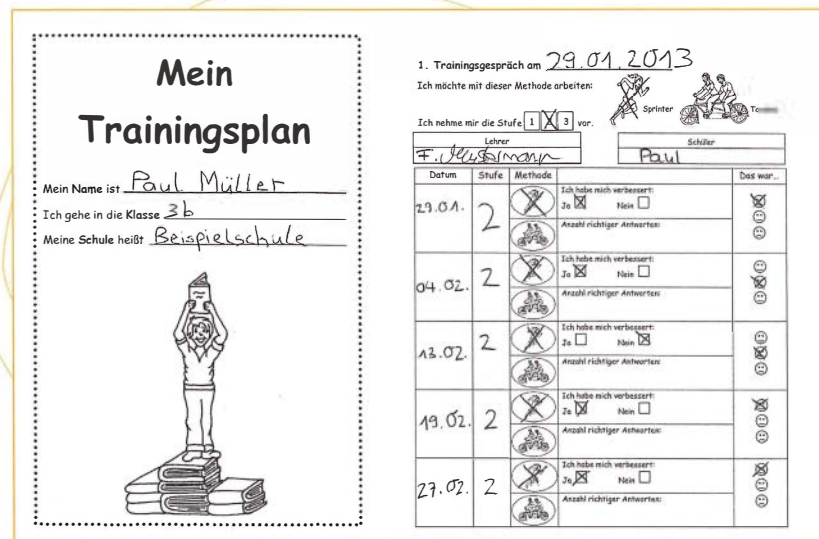 Mein
Trainingsplan
Mein Name ist Paul Müller
Ich gehe in die Klasse 3b
Meine Schule heißt Beispielschule
1. Trainingsgespräch am 29.01.2013
Ich möchte mit dieser Methode arbeiten:
Sprinter
Ich nehme mir die Stufe 1 2 3 vor.
Lehrer Schüler
F. Mustermann Paul
Datum Stufe Methode Das war...
Ich habe mich verbessert:
29.01. 2 Ja Nein
Anzahl richtiger Antworten:
Ich habe mich verbessert:
04.02. 2 Ja Nein
Anzahl richtiger Antworten:
Ich habe mich verbessert:
13.02. 2 Ja Nein
Anzahl richtiger Antworten:
Ich habe mich verbessert:
19.02. 2 Ja Nein
Anzahl richtiger Antworten:
Ich habe mich verbessert:
27.02. 2 Ja Nein
Anzahl richtiger Antworten: